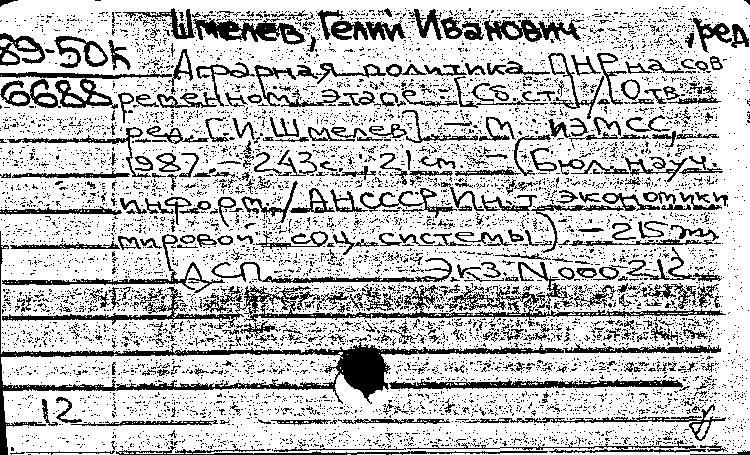 Шмелев, Гелий Иванович, ред
89-50к
Аграрная политика ПНР на сов
6688
ременном этапе - [Сб. ст.] / [Отв.
ред. Г.И. Шмелев] - М. ИЭМСС,
1987. - 243с.; 21 см. - (Бюл. науч.
информ. / АН СССР, Ин-т экономики
мировой соц. системы) - 215
ДСП. Экз. N 000212
12